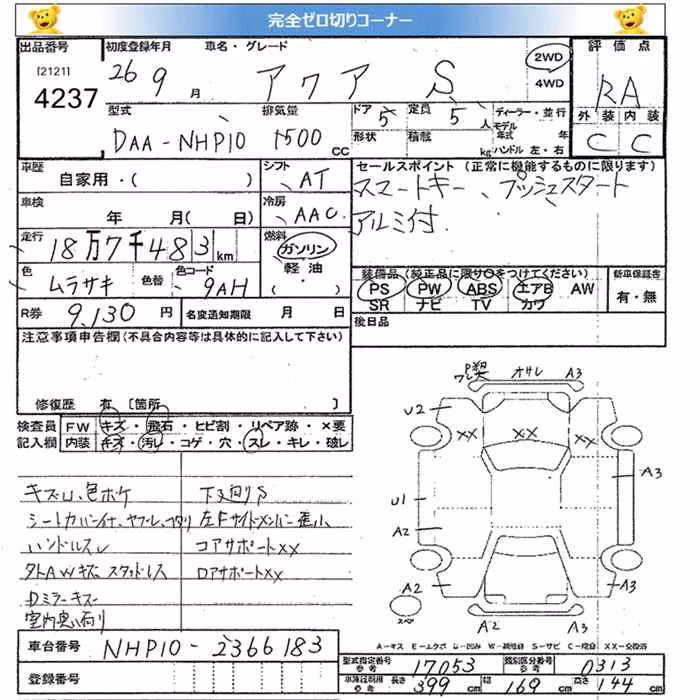 完全ゼロ切りコーナー
出品番号
[2121]
4237
初度登録年月 車名・グレード
26 9 月 アクア S
2WD
4WD
評価点
RA
外装 内装
C C
型式 排気量 ドア 定員 ディーラー・並行
DAA-NHP10 1500 CC 5 5 人
形状 積載 kg
モデル年式 年
ハンドル 左・右
車歴
自家用・( )
シフト AT
車検
年 月( 日)
冷房 AAC
走行
18万7千483km
燃料
ガソリン
軽油
( )
色 ムラサキ 色替 色コード 9AH
R券 9,130 円 名変通知期限 月 日
セールスポイント (正常に機能するものに限ります)
スマートキー、プッシュスタート
アルミ付
装備品(純正品に限り○をつけてください) 新車保証書
PS PW ABS エアB AW 有・無
SR ナビ TV カワ
後日品
注意事項申告欄(不具合内容等は具体的に記入して下さい)
修復歴 有 [箇所
検査員 FW キズ・飛石・ヒビ割・リペア跡・×要
記入欄 内装 キズ・汚レ・コゲ・穴・スレ・キレ・破レ
キズU、色ボケ 下廻りS
左Fサイドメンバー歪小
ハンドルスレ コアサポートXX
外AWキズ スタッドレス ロアサポートXX
Dミラーキズ
車台番号 NHP10-2366183
登録番号
A3
U2
XX XX XX
A3
U1
A2
A2 A3
A2 A3
A-キズ E-エクボ U-凹み W-補修跡 S-サビ C-腐食 XX-交換済
型式指定番号 参考 17053 類別区分番号 参考 0313
長さ 399 cm 幅 169 cm 高さ 144 cm